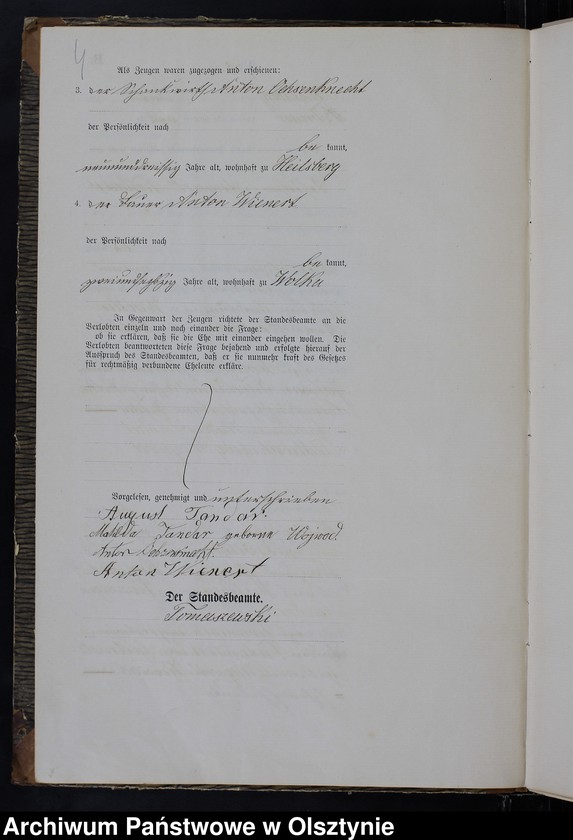 4
Als Zeugen waren zugezogen und erschienen:
3. der Schankwirth Anton Ochsenknecht
der Persönlichkeit nach
be kannt,
neununddreissig Jahre alt, wohnhaft zu Heilsberg
4. der Bauer Anton Wienert
der Persönlichkeit nach
be kannt,
zweiundsechszig Jahre alt, wohnhaft zu Wolka
In Gegenwart der Zeugen richtete der Standesbeamte an die
Verlobten einzeln und nach einander die Frage:
ob sie erklären, daß sie die Ehe mit einander eingehen wollen. Die
Verlobten beantworteten diese Frage bejahend und erfolgte hierauf der
Ausspruch des Standesbeamten, daß er sie nunmehr kraft des Gesetzes
für rechtmäßig verbundene Eheleute erkläre.
Vorgelesen, genehmigt und unterschrieben
August Tandar.
Matilda Tandar geborne Wojwod
Anton Ochsenknecht.
Anton Wienert
Der Standesbeamte.
Tomaszewski
Archiwum Państwowe w Olsztynie